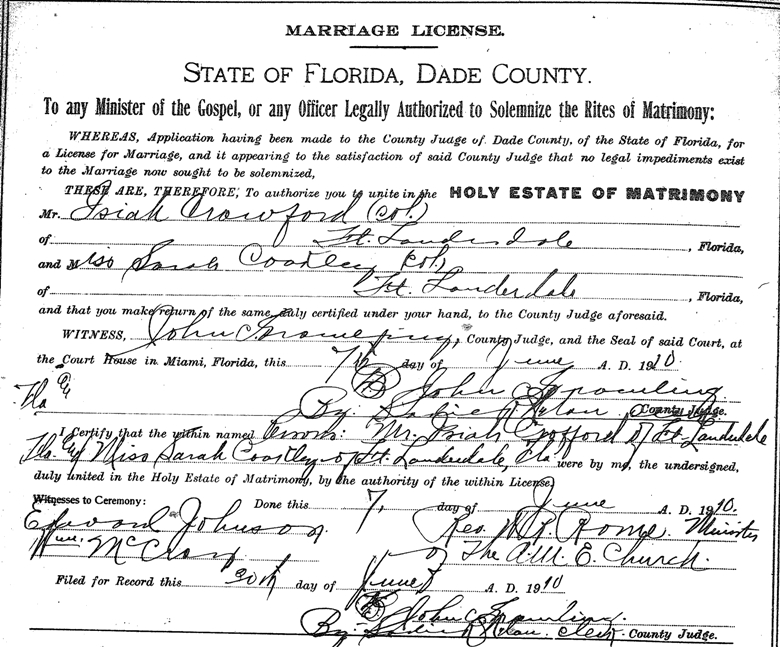 MARRIAGE LICENSE.
STATE OF FLORIDA, DADE COUNTY.
To any Minister of the Gospel, or any Officer Legally Authorized to Solemnize the Rites of Matrimony:
WHEREAS, Application having been made to the County Judge of Dade County, of the State of Florida, for
a License for Marriage, and it appearing to the satisfaction of said County Judge that no legal impediments exist
to the Marriage now sought to be solemnized,
THESE ARE, THEREFORE, To authorize you to unite in the HOLY ESTATE OF MATRIMONY
Mr. Isiah Crowford (Col.)
of Ft. Lauderdale, Florida,
and Miss Sarah Coatley (Col.)
of Ft. Lauderdale, Florida,
and that you make return of the same, duly certified under your hand, to the County Judge aforesaid.
WITNESS, John, County Judge, and the Seal of said Court, at
the Court House in Miami, Florida, this 7th day of June A. D. 1910
John
Fla By County Judge.
I Certify that the within named Mr. Isiah Crofford of Ft. Lauderdale
Fla. & Miss Sarah Coatley of Ft. Lauderdale, Fla were by me, the undersigned,
duly united in the Holy Estate of Matrimony, by the authority of the within License.
Witnesses to Ceremony: Done this 7, day of June A. D. 1910.
Edward Johnson. Rev. W. R. Rome. Minister
Wm. McCrary of The A. M. E. Church.
Filed for Record this 20th day of June A. D. 1910
John
By Clerk. County Judge.